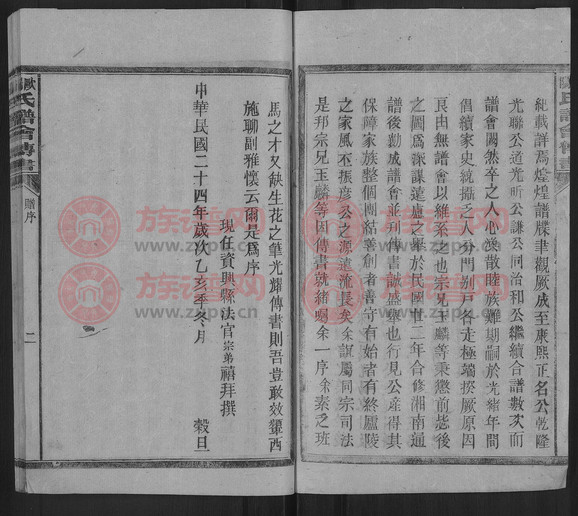 紀載詳焉煌煌譜牒聿觀厥成至康熙正名公乾隆
光聯公道光昕公謙公同治和公繼續合譜數次而
譜會闕然卒之人心渙散睦族難期嗣於光緒年間
倡續家史統攝之人分門別戶各走極端揆厥原因
良由無譜會以維系之也宗兄玉麟等乘懲前毖後
之圖爲深謀遠慮之舉於民國廿二年合修湘南通
譜後勷成譜會並刊傳書誠盛舉也行見公産得其
保障家族整個團結善創者善守有始者有終廬陵
之家風丕振彦公之源遠流長矣余誼屬同宗司法
是邦宗兄玉麟等因傳書就緒囑余一序余素乏班
馬之才又缺生花之筆光耀傳書則吾豈敢效顰西
施聊副雅懷云爾是爲序
現任資興縣法官宗弟禧拜撰
中華民國二十四年歲次乙亥季冬月
穀旦
歐氏譜會傳書
贈序
二
族譜网
www.zupu.cn
族譜网
www.zupu.cn
族譜网
www.zupu.cn
族譜网
www.zupu.cn